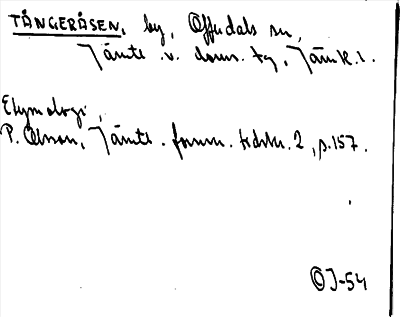 TÅNGERÅSEN, by, Offerdals sn,
Jämtl. v. doms. tg, Jämtl. l.
Etymologi:
P. Olsson, Jämtl. fornm. tidskr. 2, s. 157.
OJ-54